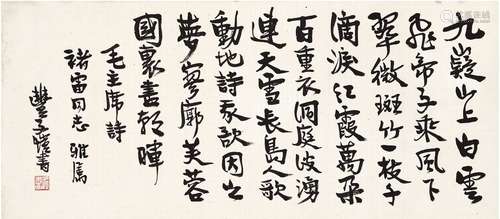 九嶷山上白雲
飛帝子乘風下
翠微斑竹一枝千
滴淚紅霞萬朵
百重衣洞庭波湧
連天雪長島人歌
動地詩我欲因之
夢寥廓芙蓉
國裏盡朝暉
毛主席詩
褚雷同志 雅屬
豐子愷書